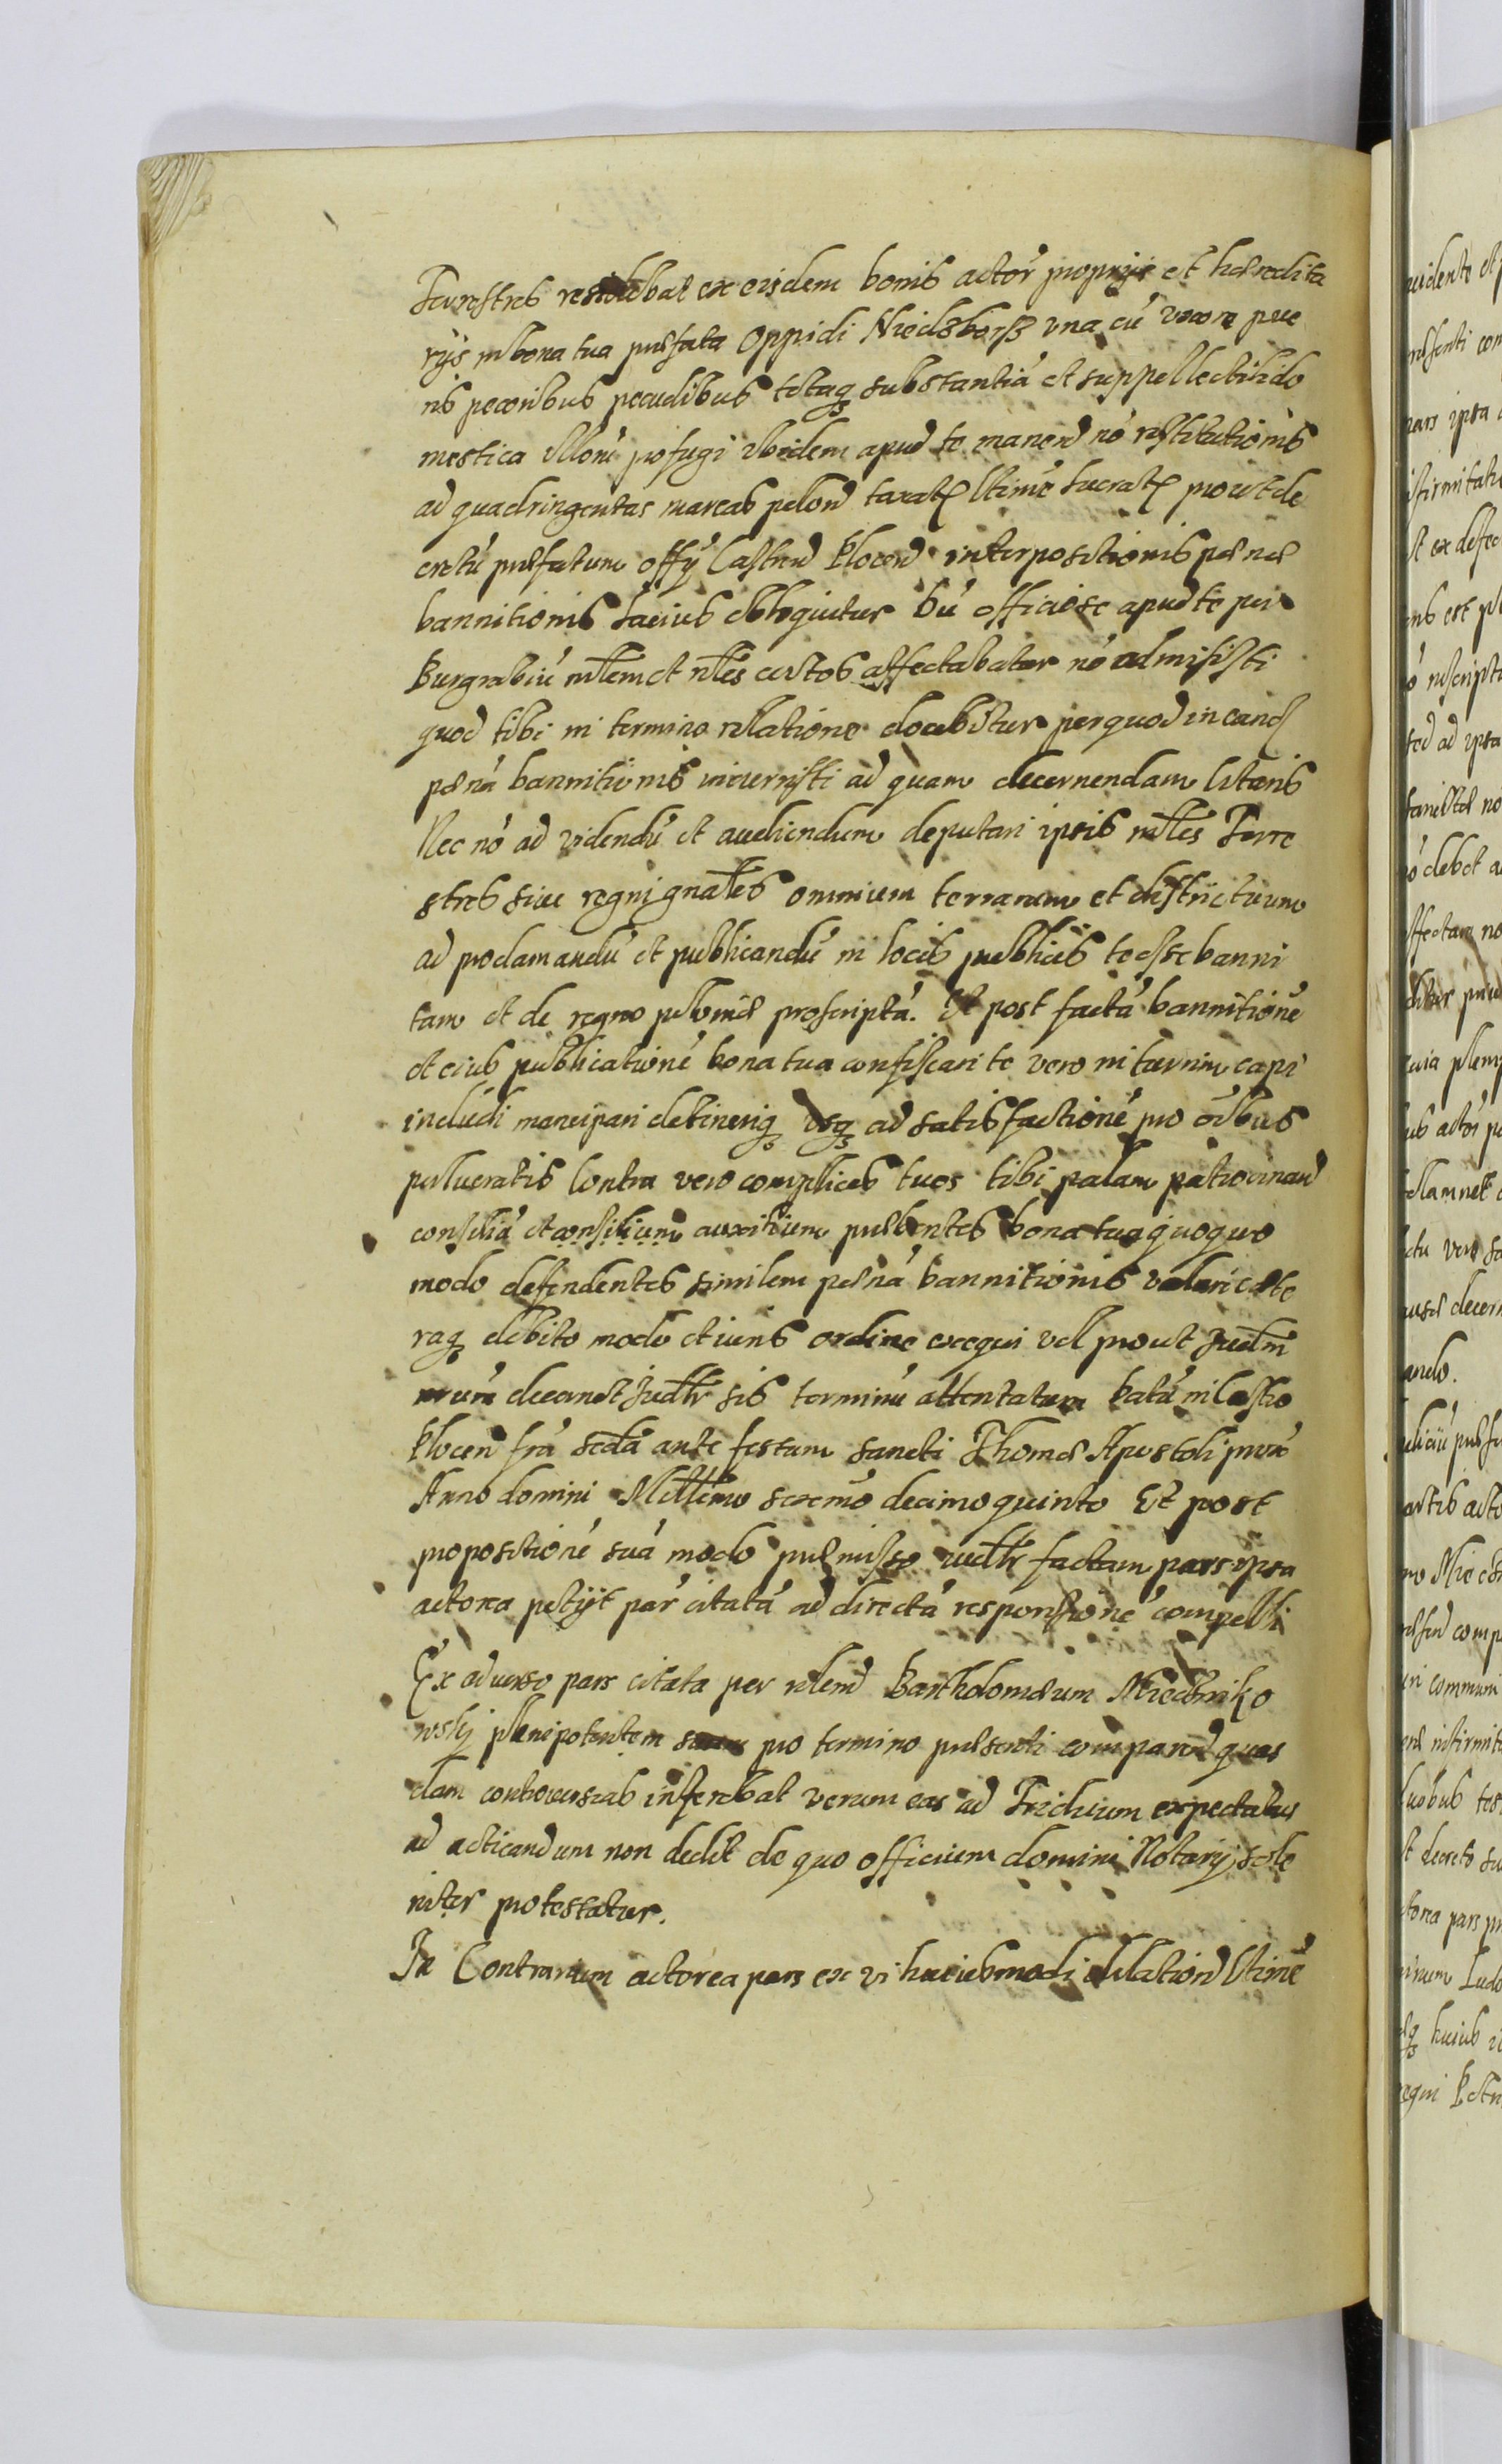 Terrestres residebat ex eisdem bonis actor̃ proprijs et hæredita
rijs in bona tua præfata Oppidi Niedzborz vna cũ vxore pue
ris pecoribus pecudibus totaq3 substantiá et suppellectili do
mestica illorũ profugi ibidem apud te manen̄ nó restitutionis
ad quadringentas marcas polon̄ taxat ltimé lucrat prout de
cretũ præfatum offÿ Castren̄ Plocen̄ interpositionis pænæ
bannitionis latius obloquitur Cũ officiose apud te per
Burgrabiũ mlem et nles certos affectabatur nó admisisti
quod tibi in termino relatione docebitur per quod in eand
pænã bannitionis incurristi ad quam decernendam citaris
Nec nó ad videndũ et audiendum deputari ipsis mles Terre
stres siue regni gnales omnium terrarum et districtuum
ad proclamandũ et publicandũ in locis publicis te esse banni
tam et de regno poloniæ proscriptá. Et post factá bannitioné
et eius publicationé bona tua confiscari te vero in turrim capi
includi mancipari detineriq3 vsq3 ad satisfactioné pro oĩbus
præluctatis Contra vero complices tuos tibi palam patrocinan̄
consiliá et consilium auxilium præbentes bona tua quoquo
modo defendentes similem pænã bannitionis valari cæte
raq3 debito modo et iuris ordine exequi vel prout Judm̄
nrũm decernet Judr̃ sis terminũ attentatum ratũ in Castro
Plocen̄ fr̃a secda ante festum sancti Thomæ Apostoli prox̃
Anno domini Millimo sexcmo decimo quinto Et post
propositioné suá modo præmisso iudr̃ factam pars ipsa
actorea petijt par citatá ad directá responsioné compelli
Ex aduerso pars citata per nlem̄ Bartholomæum Mieczniko
wskij plenipotentem suum pro termino præsenti comparen̄ quas
dam controuersias inferebat verum eas ad Triduum expectatus
ad acticandum non dedit de quo officium domini Notarij sole
niter protestatur.
In Contrarium actorea pars ex vi huiusmodi dilation̄ ltimé